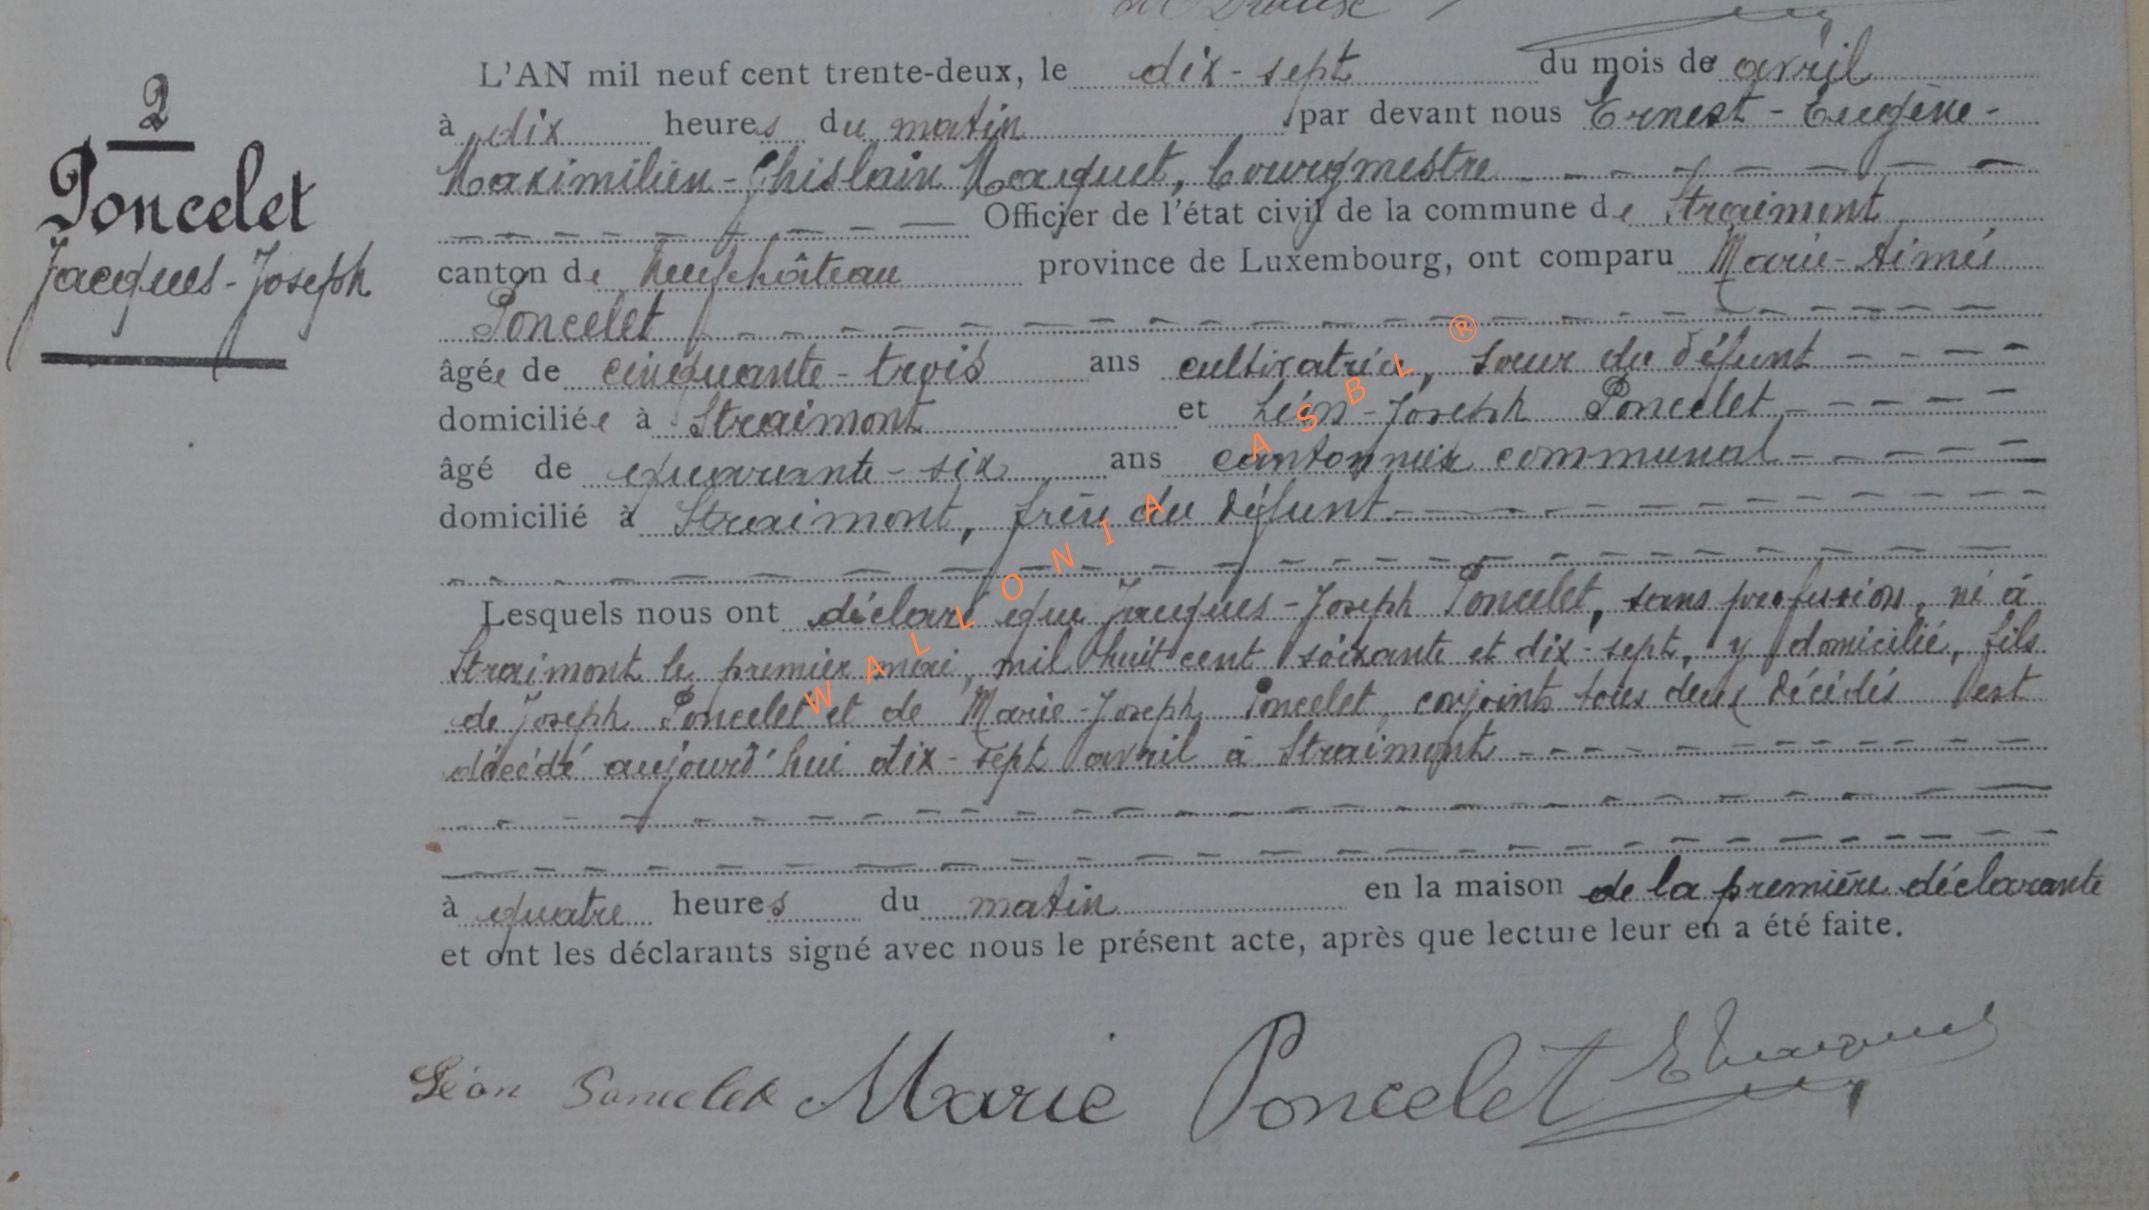 2
Poncelet
Jacques-Joseph
L'AN mil neuf cent trente-deux, le dix-sept du mois de avril
à dix heures du matin par devant nous Ernest-Eugène-
Maximilien-Ghislain Maquet, bourgmestre
Officier de l'état civil de la commune de Straimont,
canton de Neufchâteau province de Luxembourg, ont comparu Marie-Aimée
Poncelet
âgée de cinquante-trois ans cultivatrice, sœur du défunt
domiciliée à Straimont et Léon-Joseph Poncelet
âgé de quarante-six ans cantonnier communal
domicilié à Straimont, frère du défunt.
Lesquels nous ont déclaré que Jacques-Joseph Poncelet, sans profession, né à
Straimont le premier mai, mil huit cent soixante et dix-sept, y domicilié, fils
de Joseph Poncelet et de Marie-Joseph Poncelet, conjoints tous deux décédés est
décédé aujourd'hui dix-sept avril à Straimont
à quatre heures du matin en la maison de la première déclarante
et ont les déclarants signé avec nous le présent acte, après que lecture leur en a été faite.
Léon Poncelet Marie Poncelet EMaquet
WALLONIA ASBL ®